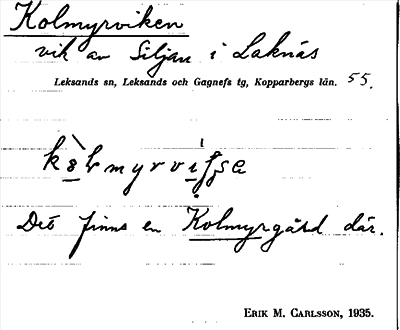 Kolmyrviken
vik av Siljan i Laknäs
Leksands sn, Leksands och Gagnefs tg, Kopparbergs län. 55.
Det finns en Kolmyrgård där.
ERIK M. CARLSSON, 1935.